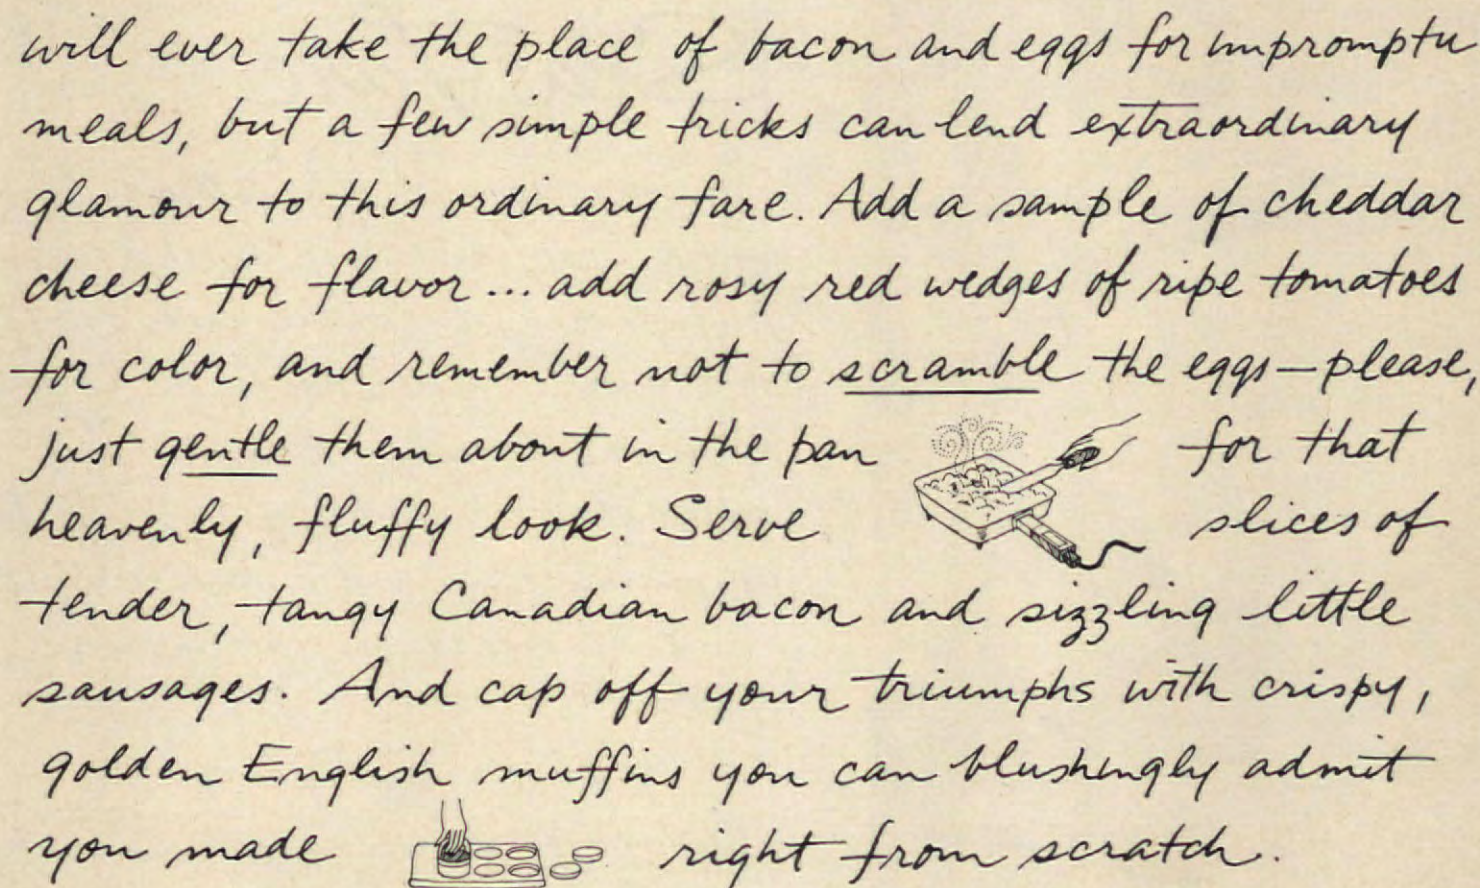 will ever take the place of bacon and eggs for impromptu
meals, but a few simple tricks can lend extraordinary
glamour to this ordinary fare. Add a sample of cheddar
cheese for flavor... add rosy red wedges of ripe tomatoes
for color, and remember not to scramble the eggs—please,
just gentle them about in the pan for that
heavenly, fluffy look. Serve slices of
tender, tangy Canadian bacon and sizzling little
sausages. And cap off your triumphs with crispy,
golden English muffins you can blushingly admit
you made right from scratch.